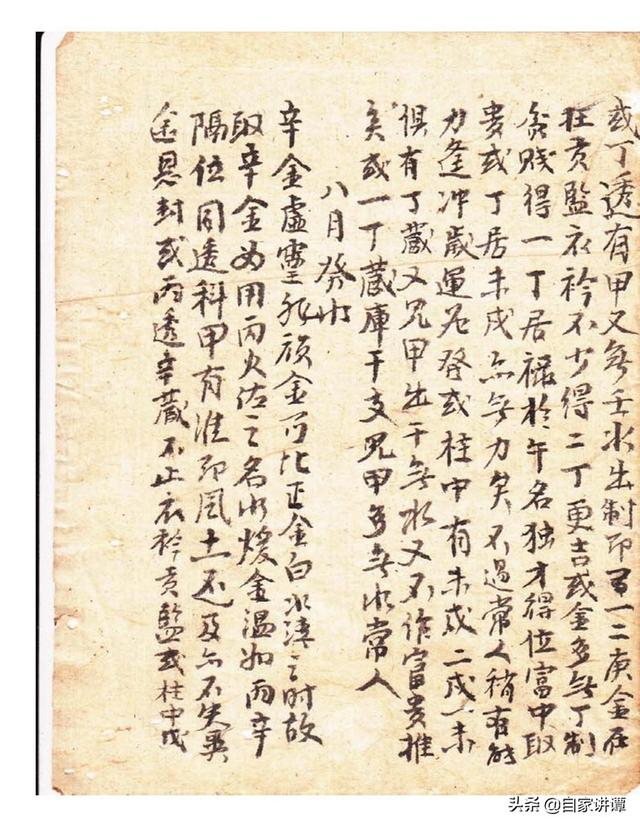 或丁透有甲又無壬水出制即有一二庚金在
柱貢監衣衿不少得二丁更吉或金多無丁制
貧賤得一丁居祿於午名独才得位富中取
貴或丁居未戌亦無力矣不過常人稍有能
力逢冲歲運君發或柱中有未戌二戌一未
俱有丁藏又見甲出干無水又不作富貴推
矣或一丁藏庫干支見甲多無水常人
八月癸水
辛金虛靈非頑金可比正金白水清之時故
取辛金为用丙火佐之名水煖金溫如丙辛
隔位同透科甲有准即風土不及亦不失異
途恩封或丙透辛藏不止衣衿貢監或柱中戊
头条 @自家讲谭